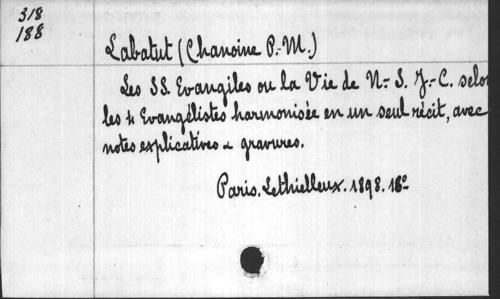 318
188
Labatut (Chanoine P.-M.)
Les SS. Evangiles ou la Vie de N.- S. J.- C. selon
les 4 Evangélistes harmonisée en un seul récit, avec
notes explicatives & gravures.
Paris. Lethielleux. 1898. 18º